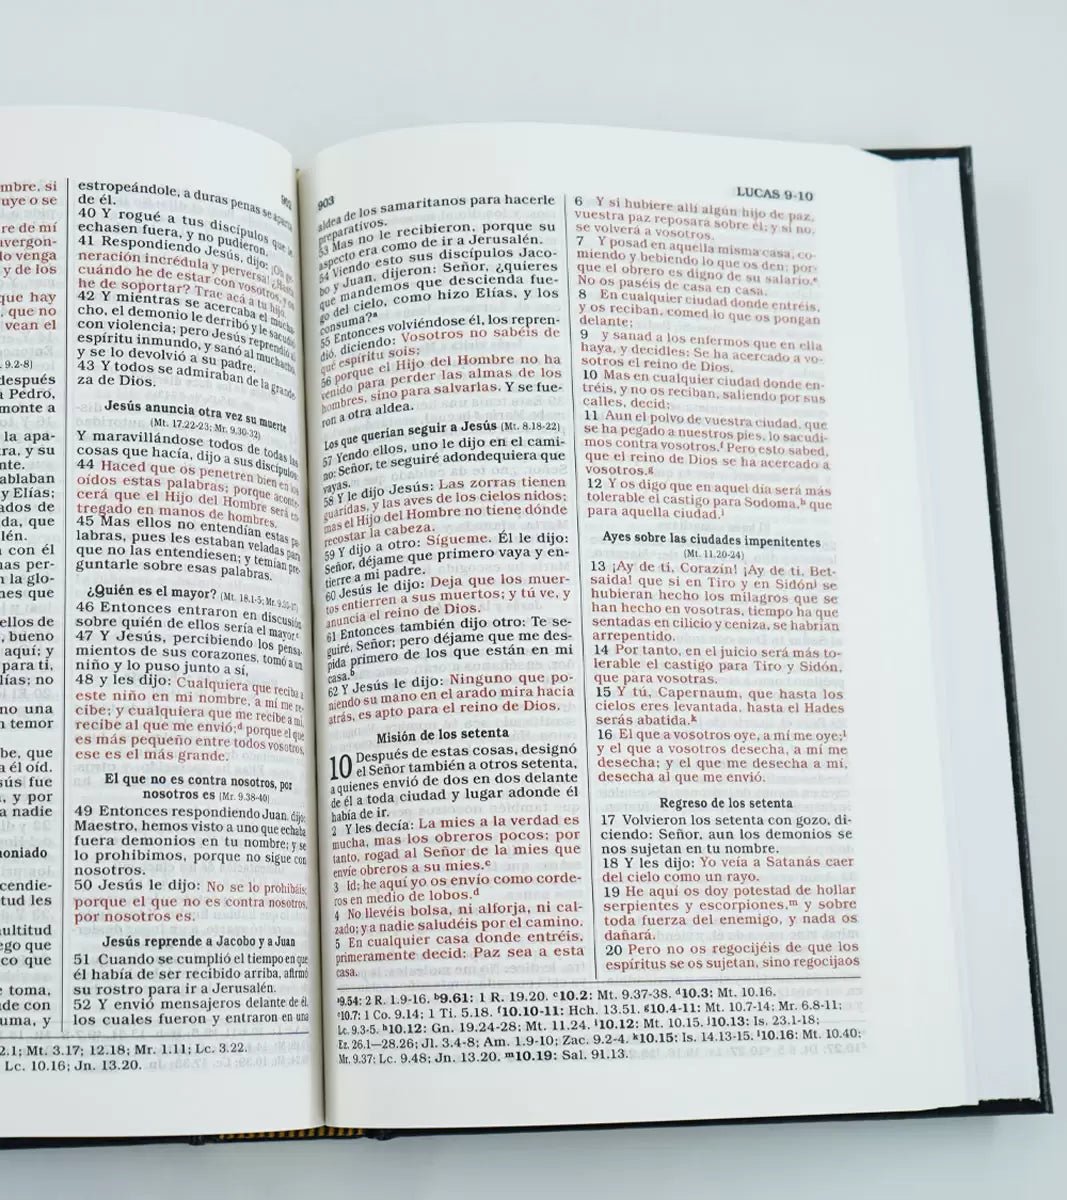 mbre, si
uye o se
re de mí
vergon-
do venga
y de los
que hay
, que no
vean el
9.2-8)
después
Pedro,
monte a
la apa-
ra, y su
nte.
ablaban
y Elías;
ados de
da, que
lén.
con él
as per-
n la glo-
nes que
ellos de
, bueno
aquí; y
para ti,
lías; no
no una
temor
be, que
a él oíd.
sús fue
, y por
a nadie
moniado
cendie-
tud les
multitud
ego que
co que
e toma,
de con
uma, y
902
estropeándole, a duras penas se aparta
de él.
40 Y rogué a tus discípulos que le
echasen fuera, y no pudieron.
41 Respondiendo Jesús, dijo: ¡Oh ge-
neración incrédula y perversa! ¿Hasta
cuándo he de estar con vosotros, y os
he de soportar? Trae acá a tu hijo.
42 Y mientras se acercaba el mucha-
cho, el demonio le derribó y le sacudió
con violencia; pero Jesús reprendió al
espíritu inmundo, y sanó al muchacho,
y se lo devolvió a su padre.
43 Y todos se admiraban de la grande-
za de Dios.
Jesús anuncia otra vez su muerte
(Mt. 17.22-23; Mr. 9.30-32)
Y maravillándose todos de todas las
cosas que hacía, dijo a sus discípulos:
44 Haced que os penetren bien en los
oídos estas palabras; porque aconte-
cerá que el Hijo del Hombre será en-
tregado en manos de hombres.
45 Mas ellos no entendían estas pa-
labras, pues les estaban veladas para
que no las entendiesen; y temían pre-
guntarle sobre esas palabras.
¿Quién es el mayor? (Mt. 18.1-5; Mr. 9.33-37)
46 Entonces entraron en discusión
sobre quién de ellos sería el mayor.c
47 Y Jesús, percibiendo los pensa-
mientos de sus corazones, tomó a un
niño y lo puso junto a sí,
48 y les dijo: Cualquiera que reciba a
este niño en mi nombre, a mí me re-
cibe; y cualquiera que me recibe a mí,
recibe al que me envió;d porque el que
es más pequeño entre todos vosotros,
ese es el más grande.
El que no es contra nosotros, por
nosotros es (Mr. 9.38-40)
49 Entonces respondiendo Juan, dijo:
Maestro, hemos visto a uno que echaba
fuera demonios en tu nombre; y se
lo prohibimos, porque no sigue con
nosotros.
50 Jesús le dijo: No se lo prohibáis;
porque el que no es contra nosotros,
por nosotros es.
Jesús reprende a Jacobo y a Juan
51 Cuando se cumplió el tiempo en que
él había de ser recibido arriba, afirmó
su rostro para ir a Jerusalén.
52 Y envió mensajeros delante de él,
los cuales fueron y entraron en una
2.1; Mt. 3.17; 12.18; Mr. 1.11; Lc. 3.22.
Lc. 10.16; Jn. 13.20.
903
LUCAS 9-10
aldea de los samaritanos para hacerle
preparativos.
53 Mas no le recibieron, porque su
aspecto era como de ir a Jerusalén.
54 Viendo esto sus discípulos Jaco-
bo y Juan, dijeron: Señor, ¿quieres
que mandemos que descienda fue-
go del cielo, como hizo Elías, y los
consuma?a
55 Entonces volviéndose él, los repren-
dió, diciendo: Vosotros no sabéis de
qué espíritu sois;
56 porque el Hijo del Hombre no ha
venido para perder las almas de los
hombres, sino para salvarlas. Y se fue-
ron a otra aldea.
Los que querían seguir a Jesús (Mt. 8.18-22)
57 Yendo ellos, uno le dijo en el cami-
no: Señor, te seguiré adondequiera que
vayas.
58 Y le dijo Jesús: Las zorras tienen
guaridas, y las aves de los cielos nidos;
mas el Hijo del Hombre no tiene dónde
recostar la cabeza.
59 Y dijo a otro: Sígueme. Él le dijo:
Señor, déjame que primero vaya y en-
tierre a mi padre.
60 Jesús le dijo: Deja que los muer-
tos entierren a sus muertos; y tú ve, y
anuncia el reino de Dios.
61 Entonces también dijo otro: Te se-
guiré, Señor; pero déjame que me des-
pida primero de los que están en mi
casa.b
62 Y Jesús le dijo: Ninguno que po-
niendo su mano en el arado mira hacia
atrás, es apto para el reino de Dios.
Misión de los setenta
10 Después de estas cosas, designó
el Señor también a otros setenta,
a quienes envió de dos en dos delante
de él a toda ciudad y lugar adonde él
había de ir.
2 Y les decía: La mies a la verdad es
mucha, mas los obreros pocos; por
tanto, rogad al Señor de la mies que
envíe obreros a su mies.c
3 Id; he aquí yo os envío como corde-
ros en medio de lobos.d
4 No llevéis bolsa, ni alforja, ni cal-
zado; y a nadie saludéis por el camino.
5 En cualquier casa donde entréis,
primeramente decid: Paz sea a esta
casa.
6 Y si hubiere allí algún hijo de paz,
vuestra paz reposará sobre él; y si no,
se volverá a vosotros.
7 Y posad en aquella misma casa, co-
miendo y bebiendo lo que os den; por-
que el obrero es digno de su salario.e
No os paséis de casa en casa.
8 En cualquier ciudad donde entréis,
y os reciban, comed lo que os pongan
delante;
9 y sanad a los enfermos que en ella
haya, y decidles: Se ha acercado a vo-
sotros el reino de Dios.
10 Mas en cualquier ciudad donde en-
tréis, y no os reciban, saliendo por sus
calles, decid:
11 Aun el polvo de vuestra ciudad, que
se ha pegado a nuestros pies, lo sacudi-
mos contra vosotros.f Pero esto sabed,
que el reino de Dios se ha acercado a
vosotros.g
12 Y os digo que en aquel día será más
tolerable el castigo para Sodoma,h que
para aquella ciudad.i
Ayes sobre las ciudades impenitentes
(Mt. 11.20-24)
13 ¡Ay de ti, Corazín! ¡Ay de ti, Bet-
saida! que si en Tiro y en Sidónj se
hubieran hecho los milagros que se
han hecho en vosotras, tiempo ha que
sentadas en cilicio y ceniza, se habrían
arrepentido.
14 Por tanto, en el juicio será más to-
lerable el castigo para Tiro y Sidón,
que para vosotras.
15 Y tú, Capernaum, que hasta los
cielos eres levantada, hasta el Hades
serás abatida.k
16 El que a vosotros oye, a mí me oye;l
y el que a vosotros desecha, a mí me
desecha; y el que me desecha a mí,
desecha al que me envió.
Regreso de los setenta
17 Volvieron los setenta con gozo, di-
ciendo: Señor, aun los demonios se
nos sujetan en tu nombre.
18 Y les dijo: Yo veía a Satanás caer
del cielo como un rayo.
19 He aquí os doy potestad de hollar
serpientes y escorpiones,m y sobre
toda fuerza del enemigo, y nada os
dañará.
20 Pero no os regocijéis de que los
espíritus se os sujetan, sino regocijaos
a9.54: 2 R. 1.9-16. b9.61: 1 R. 19.20. c10.2: Mt. 9.37-38. d10.3: Mt. 10.16.
e10.7: 1 Co. 9.14; 1 Ti. 5.18. f10.10-11: Hch. 13.51. g10.4-11: Mt. 10.7-14; Mr. 6.8-11;
Lc. 9.3-5. h10.12: Gn. 19.24-28; Mt. 11.24. i10.12: Mt. 10.15. j10.13: Is. 23.1-18;
Ez. 26.1—28.26; Jl. 3.4-8; Am. 1.9-10; Zac. 9.2-4. k10.15: Is. 14.13-15. l10.16: Mt. 10.40;
Mr. 9.37; Lc. 9.48; Jn. 13.20. m10.19: Sal. 91.13.